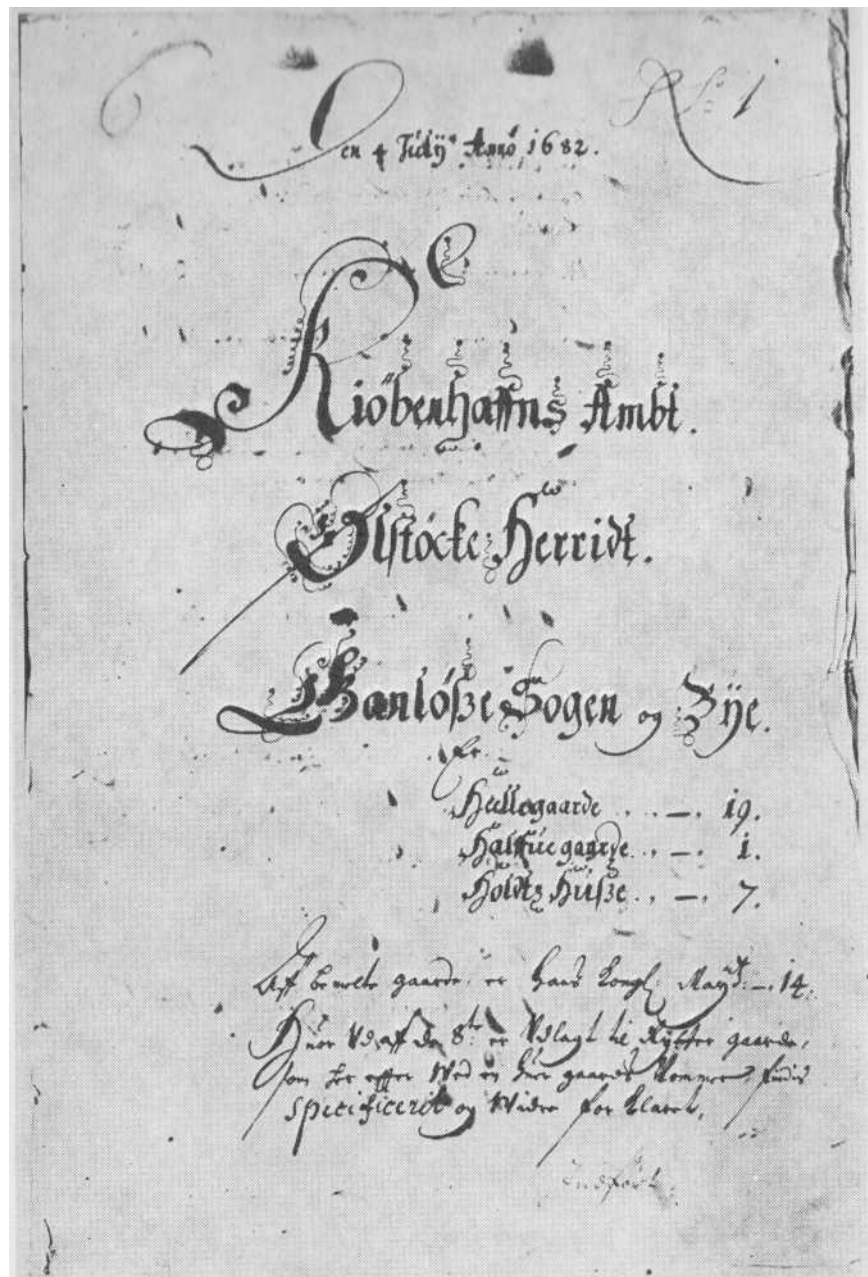 No 1
Den 4 Julÿ Anno 1682.
Kiöbenhaffns Ambt.
Ølstöcke Herridt.
Ganlösze Sogen og Bÿe.
Er
Heellegaarde . . . — . 19.
Halffue gaarde . . — . 1.
Holdtz Husze . . — . 7.
Aff bemelte gaarde, er Hans Kongl: Maÿtt: — . 14.
Huor Vdaff de 8te er Vdlagt til Rÿtter gaarde,
som her effter Wed en huer gaards Nommer findis
specificerit og Widre for klaret,
Indført